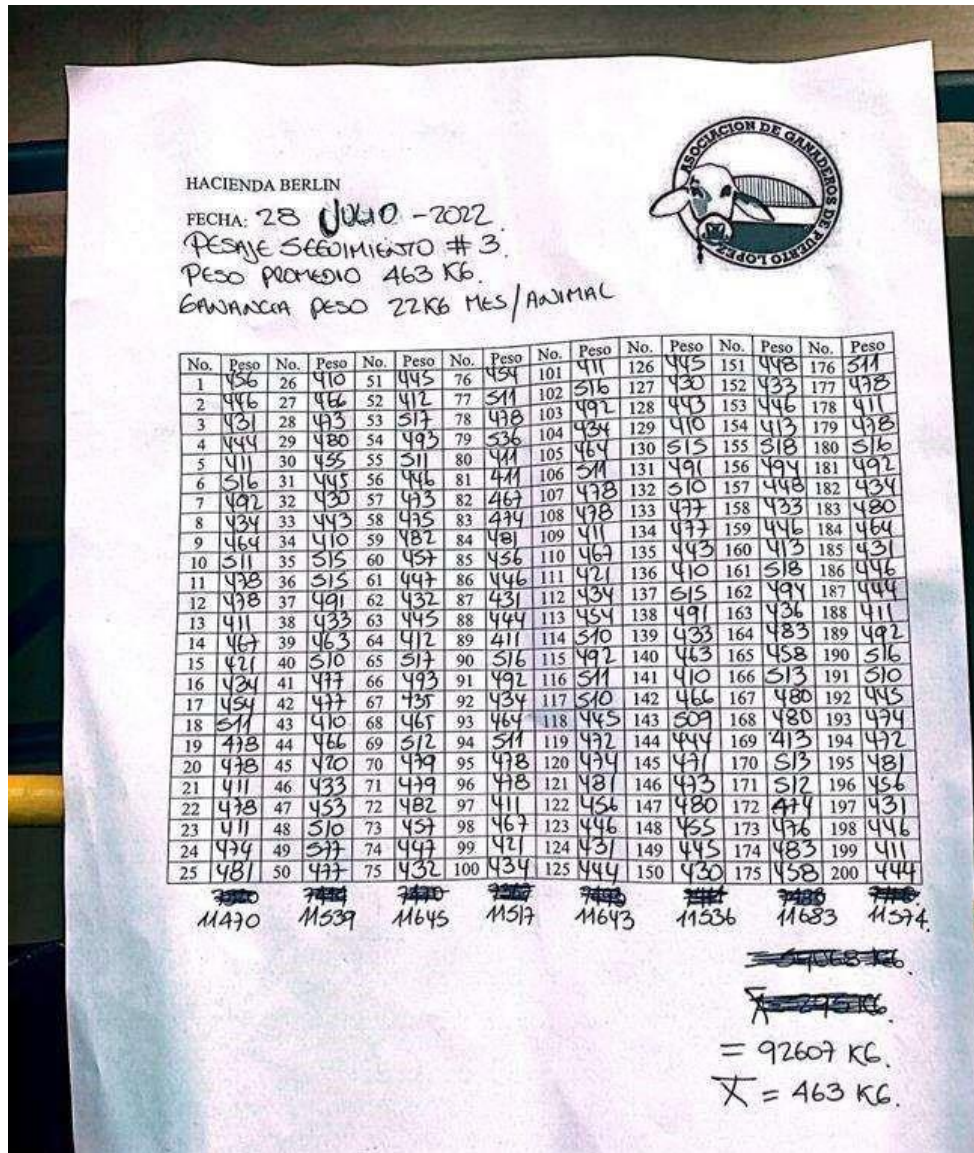 ASOCIACION DE GANADEROS DE PUERTO LOPEZ
HACIENDA BERLIN
FECHA: 28 JULIO - 2022.
PESAJE SEGUIMIENTO # 3.
PESO PROMEDIO 463 KG.
GANANCIA PESO 22KG MES/ANIMAL
No. Peso No. Peso No. Peso No. Peso No. Peso No. Peso No. Peso No. Peso
1 456 26 410 51 445 76 454 101 411 126 445 151 448 176 511
2 446 27 466 52 412 77 511 102 516 127 430 152 433 177 478
3 431 28 473 53 517 78 478 103 492 128 443 153 446 178 411
4 444 29 480 54 493 79 536 104 434 129 410 154 413 179 478
5 411 30 455 55 511 80 411 105 464 130 515 155 518 180 516
6 516 31 445 56 446 81 411 106 511 131 491 156 494 181 492
7 492 32 430 57 473 82 467 107 478 132 510 157 448 182 434
8 434 33 443 58 475 83 474 108 478 133 477 158 433 183 480
9 464 34 410 59 482 84 481 109 411 134 477 159 446 184 464
10 511 35 515 60 457 85 456 110 467 135 443 160 413 185 431
11 478 36 515 61 447 86 446 111 421 136 410 161 518 186 446
12 478 37 491 62 432 87 431 112 434 137 515 162 494 187 444
13 411 38 433 63 445 88 444 113 454 138 491 163 436 188 411
14 467 39 463 64 412 89 411 114 510 139 433 164 483 189 492
15 421 40 510 65 517 90 516 115 492 140 463 165 458 190 516
16 434 41 477 66 493 91 492 116 511 141 410 166 513 191 510
17 454 42 477 67 435 92 434 117 510 142 466 167 480 192 445
18 511 43 410 68 465 93 464 118 445 143 509 168 480 193 474
19 478 44 466 69 512 94 511 119 472 144 444 169 413 194 472
20 478 45 420 70 479 95 478 120 474 145 471 170 513 195 481
21 411 46 433 71 479 96 478 121 481 146 473 171 512 196 456
22 478 47 453 72 482 97 411 122 456 147 480 172 474 197 431
23 411 48 510 73 457 98 467 123 446 148 455 173 476 198 446
24 474 49 577 74 447 99 421 124 431 149 445 174 483 199 411
25 481 50 477 75 432 100 434 125 444 150 430 175 458 200 444
11470 11539 11645 11517 11643 11536 11683 11574.
= 92607 KG.
X = 463 KG.